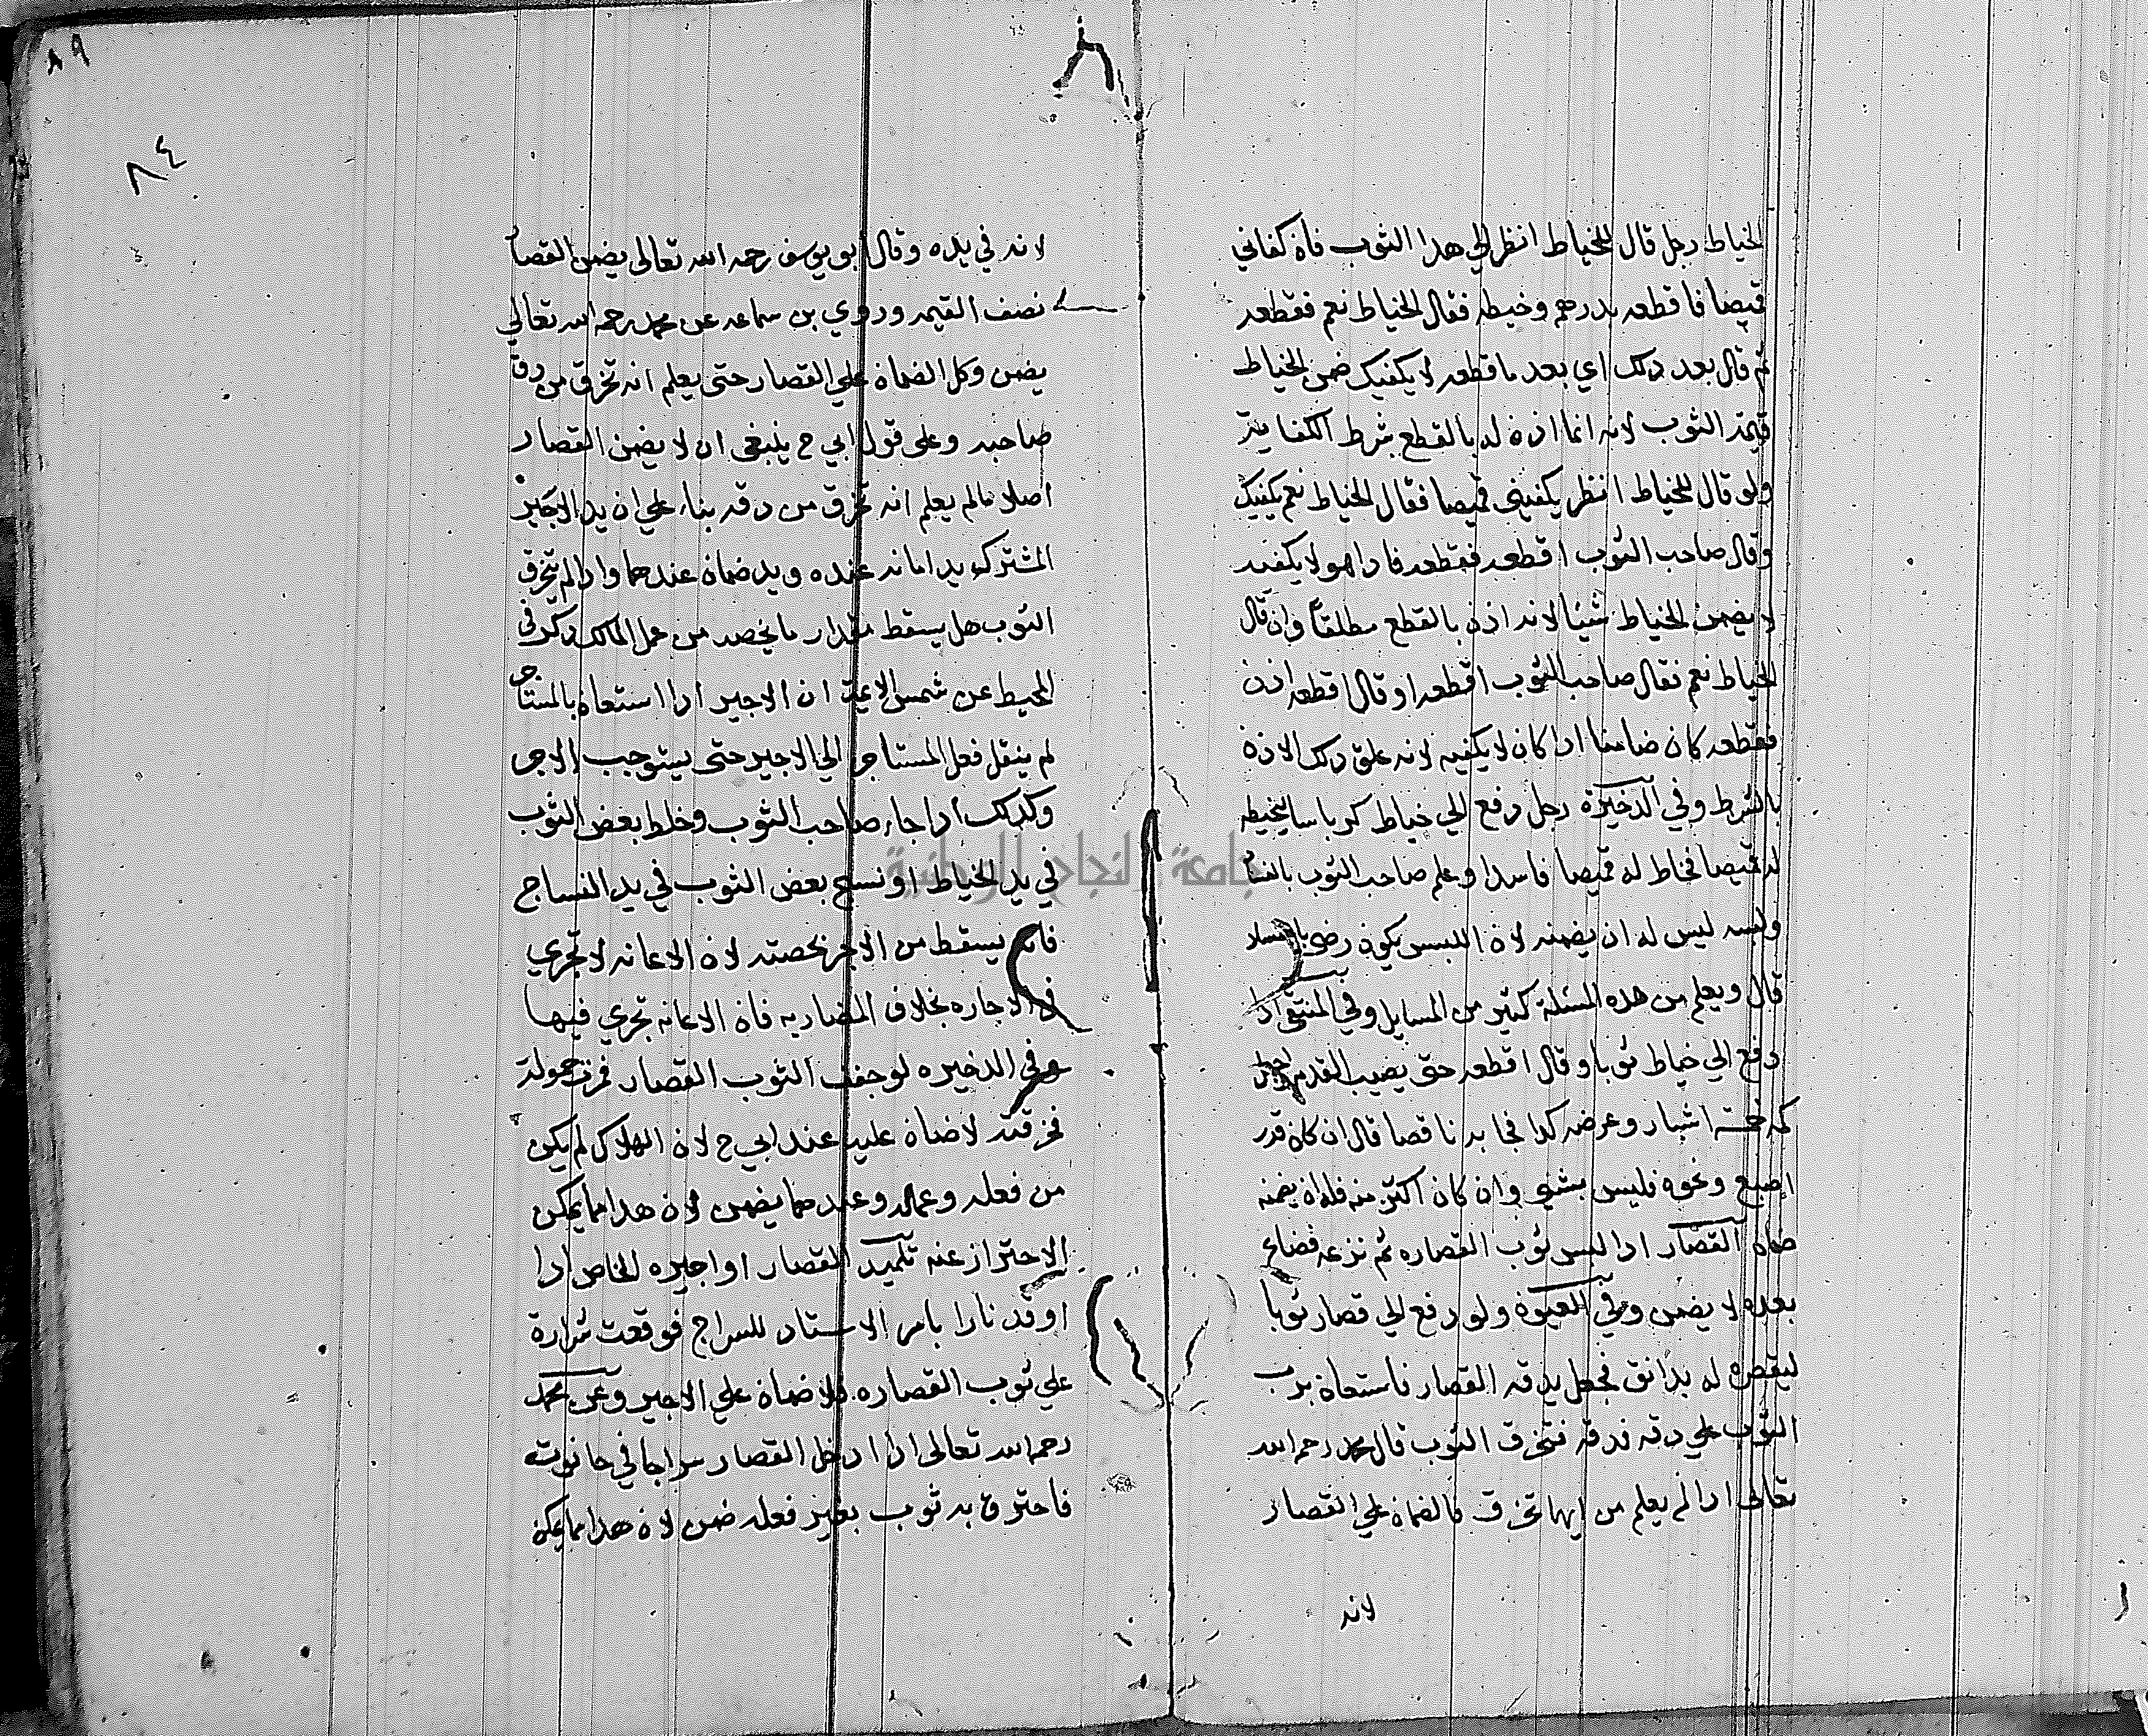 الخياط رجل قال للخياط انظر الي هدا الثوب فان كفاني
قميصا فاقطعه بدرهم وخيطه فقال الخياط نعم فقطعه
ثم قال بعد دلك اي بعد ما قطعه لا يكفيك ضمن الخياط
قيمة الثوب لانه انما اذن له بالقطع بشرط الكفاية
ولو قال للخياط انظر يكفيني قميصا فقال الخياط نعم يكفيك
وقال صاحب الثوب اقطعه فقطعه فادا هو لا يكفيه
لا يضمن الخياط شيئا لانه اذن بالقطع مطلقا وان قال
الخياط نعم فقال صاحب الثوب اقطعه او قال اقطعه اذن
فقطعه كان ضامنا ادا كان لا يكفيه لانه علق دلك الاذن
بالشرط وفي الدخيرة رجل دفع الي خياط كرباسا ليخيطه
له قميصا فخاط له قميصا فاسدا وعلم صاحب الثوب بالفساد
ولبسه ليس له ان يضمنه لان اللبس يكون رضي بالفساد
قال ويعلم من هده المسئلة كثير من المسايل وفي المنتقى ادا
دفع الي خياط ثوبا وقال اقطعه حتى يصيب القدم اجعل
كمه خمسة اشبار وعرضه كدا فجا به ناقصا قال ان كان قدر
اصبع ونحوه فليس بشئ وان كان اكثر منه فله ان يضمنه
ضمان القصار ادا لبس ثوب القصاره ثم نزعه فضاع
بعده لا يضمن وفي العيون ولو دفع الي قصار ثوبا
ليقصره له بدانق فجعل يدقه القصار فاستعان برب
الثوب علي دقه فدقه فتخرق الثوب قال محمد رحمه الله
تعالى ادا لم يعلم من ايهما تخرق فالضمان علي القصار
لانه
٨٩
٨٤
لانه في يده وقال ابو يوسف رحمه الله تعالى يضمن القصار
نصف القيمه وروي بن سماعه عن محمد رحمه الله تعالي
يضمن وكل الضمان علي القصار حتى يعلم انه تخرق من دق
صاحبه وعلى قول ابي ح ينبغي ان لا يضمن القصار
اصلا مالم يعلم انه تخرق من دقه بناء علي ان يد الاجير
المشترك يد امانه عنده ويد ضمان عندهما وادا لم يتخرق
الثوب هل يسقط مقدار ما يخصه من عمل المالك دكر في
المحيط عن شمس الائمة ان الاجير ادا استعان بالمستاجر
لم ينقل فعل المستاجر الي الاجير حتى يستوجب الاجر
وكدلك ادا جاء صاحب الثوب وخلط بعض الثوب
في يد الخياط او نسج بعض الثوب في يد النساج
فانه يسقط من الاجر بحصته لان الاعانه لا تجري
في الاجاره بخلاف المضاربه فان الاعانه تجري فيها
وفي الدخيره لو جفف الثوب القصار فمرت حمولة
فخرقته لا ضمان عليه عند ابي ح لان الهلاك لم يكن
من فعله وعمله وعندهما يضمن لان هدا مما يمكن
الاحتراز عنه تلميد القصار او اجيره الخاص ادا
اوقد نارا بامر الاستاد للسراج فوقعت شرارة
علي ثوب القصاره فلا ضمان علي الاجير وعن محمد
رحمه الله تعالى ادا ادخل القصار سراجا في حانوته
فاحترق به ثوب بغير فعله ضمن لان هدا مما يمكن
جامعة النجاح الوطنية